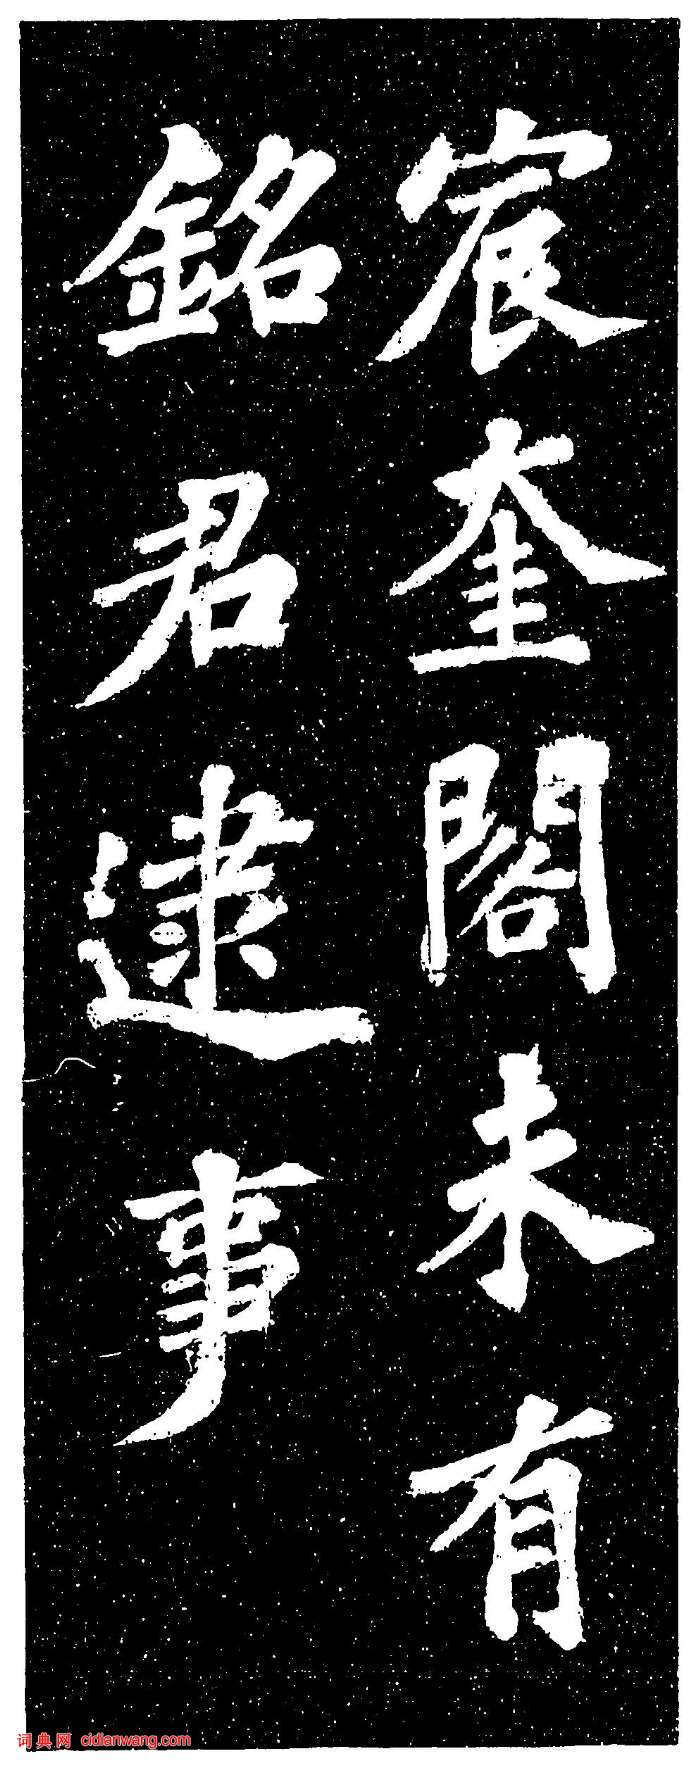 宸奎閣未有
銘君逮事
词典网 cidianwang.com